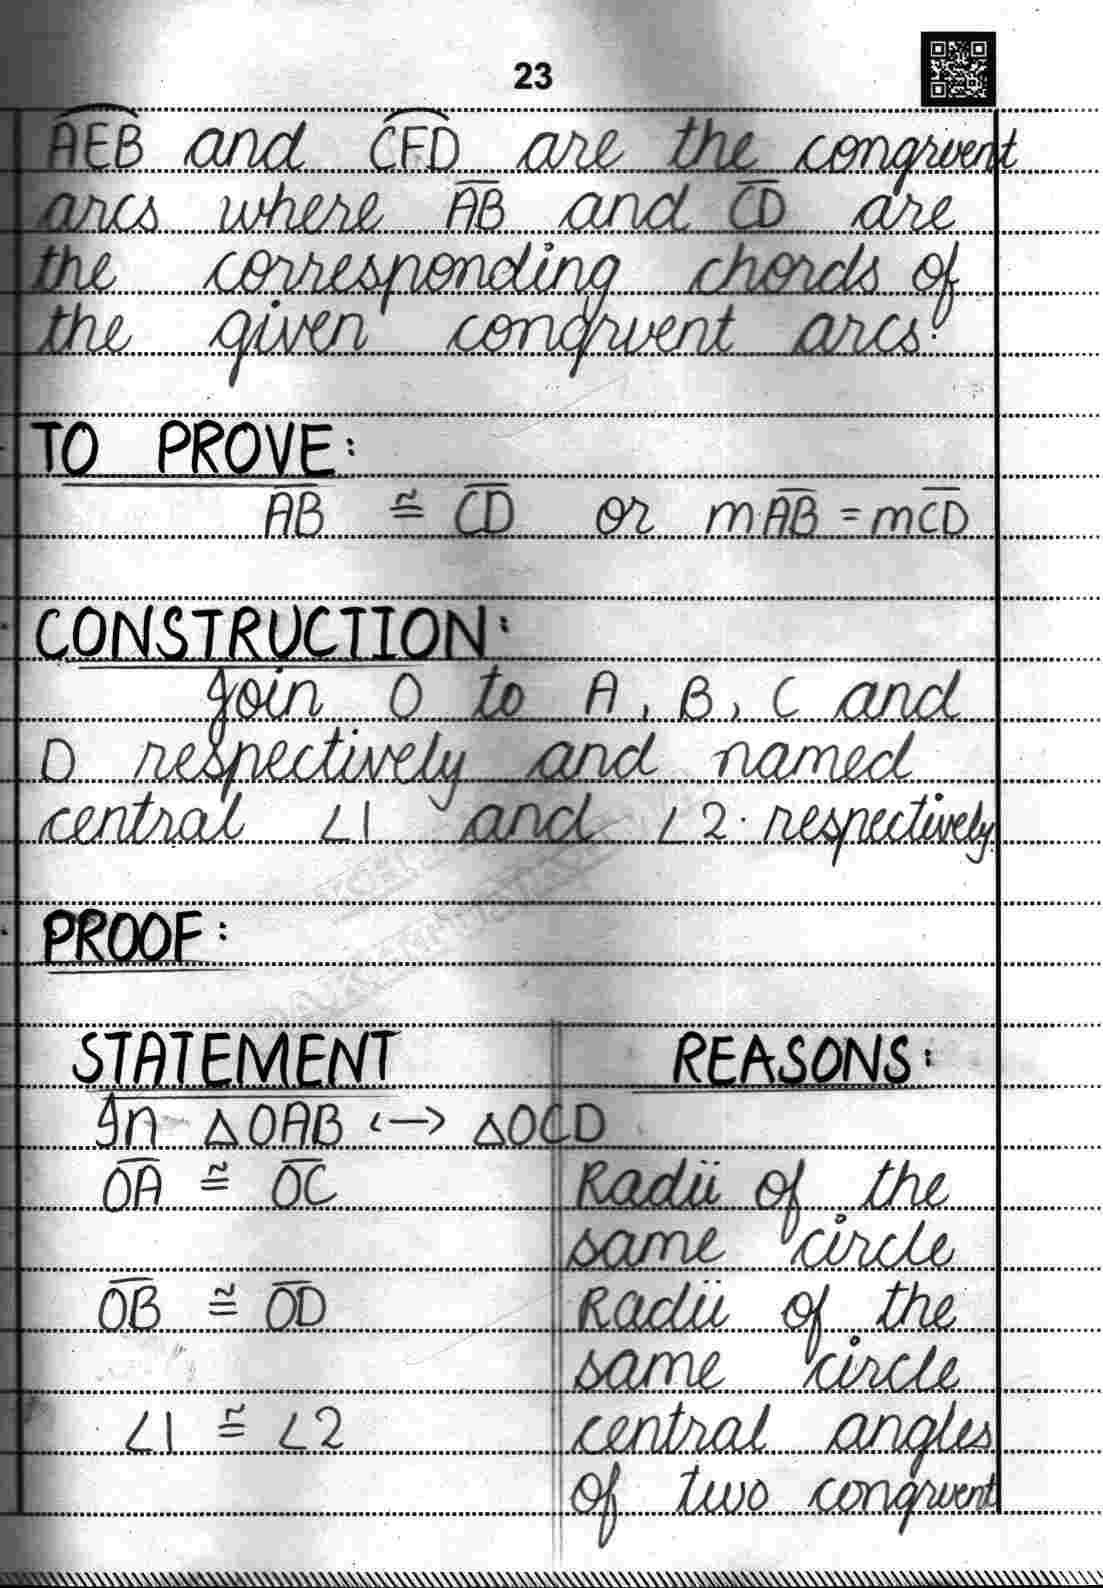 23
A͡EB and C͡FD are the congruent
arcs where A̅B̅ and C̅D̅ are
the corresponding chords of
the given congruent arcs.
TO PROVE:
A̅B̅ ≅ C̅D̅ or mA̅B̅ = mC̅D̅
CONSTRUCTION:
Join O to A, B, C and
D respectively and named
central ∠1 and ∠2. respectively.
PROOF:
STATEMENT REASONS:
In △OAB <-> △OCD
O̅A̅ ≅ O̅C̅ Radii of the
same circle
O̅B̅ ≅ O̅D̅ Radii of the
same circle
∠1 ≅ ∠2 central angles
of two congruent